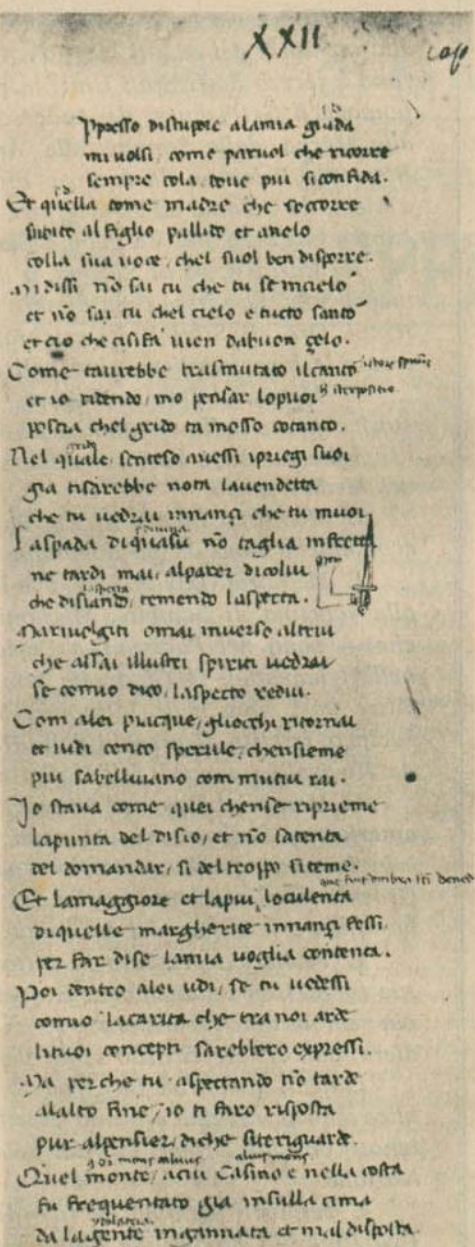 XXII
cap
Oppresso distupore alamia guida
mi volsi, come parvol che ricorre
sempre cola, dove piu siconfida.
Et quella come madre che soccorre
subito alfiglio pallido et anelo
colla sua voce, chel suol ben disporre.
Mi dissi nō sai tu che tu se incielo
et nō sai tu chel cielo e tucto sancto
et cio che cisifa vien dabuon zelo.
Come tavrebbe trasmutato ilcanto
et io ridendo, mo pensar lopuoi
poscia chel grido ta mosso cotanto.
Nel quale senteso avessi ipriegi suoi
gia tisarebbe nota lavendetta
che tu vedrai innançi che tu muoi
La spada diquasu nō taglia infretta
ne tardi mai, alparer dicolui
che disiando, temendo laspecta.
Ma rivolgiti omai inverso altrui
che assai illustri spiriti vedrai
se comio dico, laspecto redui.
Com alei piacque, gliocchi ritornai
et vidi cento sperule, chensieme
piu sabellivano com mutui rai.
Io stava come quei chense riprieme
lapunta del disio, et nō satenta
del domandar, si del troppo siteme.
Et lamaggiore et lapiu loculenta
diquelle margherite innançi fessi
per far dise lamia voglia contenta.
Poi dentro alei udi, se tu vedessi
comio lacarita che tra noi arde
lituoi concepti sarebbero expressi.
Ma perche tu aspectando nō tarde
alalto fine, io ti faro risposta
pur alpensier, diche siteriguarde.
Quel monte, acui Casino e nella costa
fu frequentato gia insulla cima
da lagente ingannata et mal disposta.